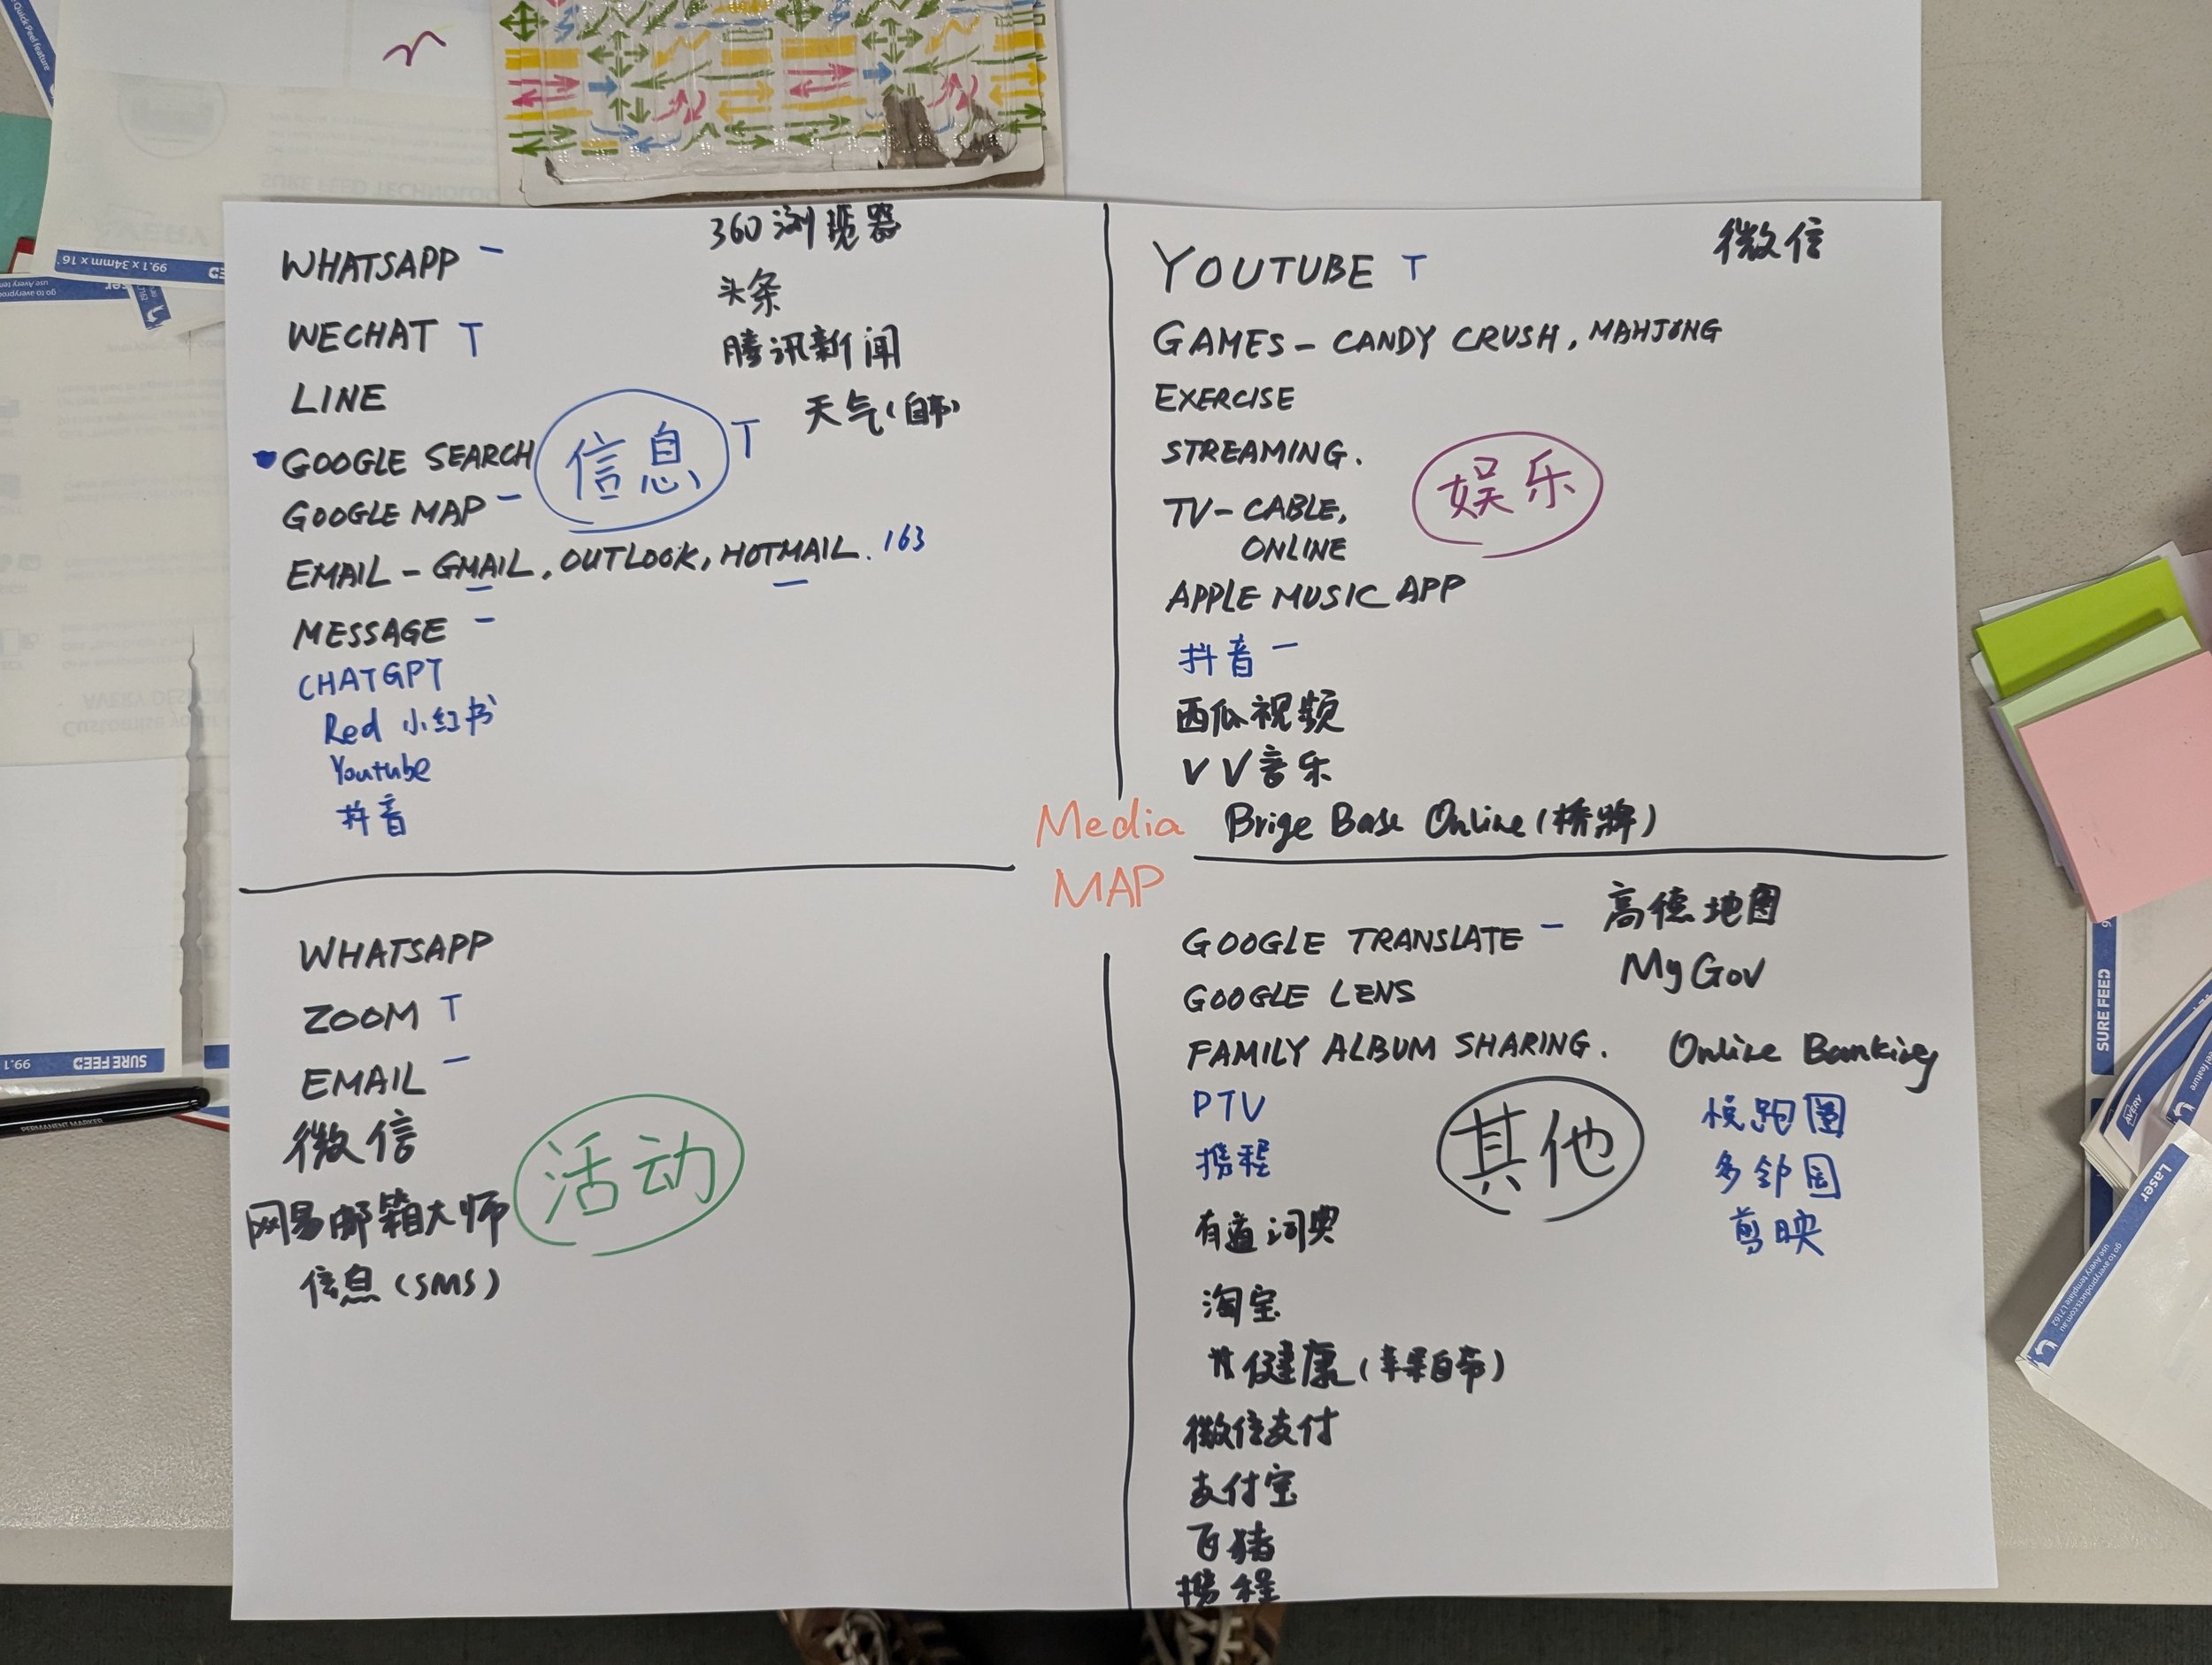 360浏览器
WHATSAPP –
头条
WECHAT T
腾讯新闻
LINE
天气(自带)
GOOGLE SEARCH
信息 T
GOOGLE MAP –
EMAIL – GMAIL, OUTLOOK, HOTMAIL. 163
MESSAGE –
CHATGPT
Red 小红书
Youtube
抖音
微信
YOUTUBE T
GAMES – CANDY CRUSH, MAHJONG
EXERCISE
STREAMING.
娱乐
TV – CABLE,
ONLINE
APPLE MUSIC APP
抖音 –
西瓜视频
VV音乐
Brige Base Online (桥牌)
Media
MAP
WHATSAPP
ZOOM T
EMAIL –
微信
活动
网易邮箱大师
信息 (SMS)
GOOGLE TRANSLATE –
高德地图
MyGov
GOOGLE LENS
FAMILY ALBUM SHARING.
Online Banking
PTV
携程
其他
悦跑圈
多邻国
剪映
有道词典
淘宝
健康 (苹果自带)
微信支付
支付宝
飞猪
携程
PERMANENT MARKER
SURE FEED
99.1
99.1 x 34mm x 16
SURE FEED
Laser
go to averyproducts.com.au
use Avery template L7162